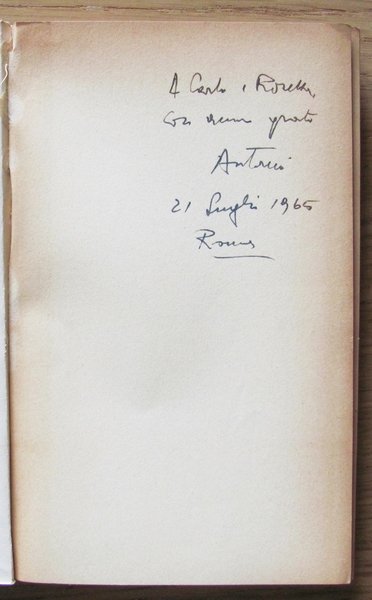 A Carlo e Rosetta,
con animo grato
Antonio
21 luglio 1965
Roma